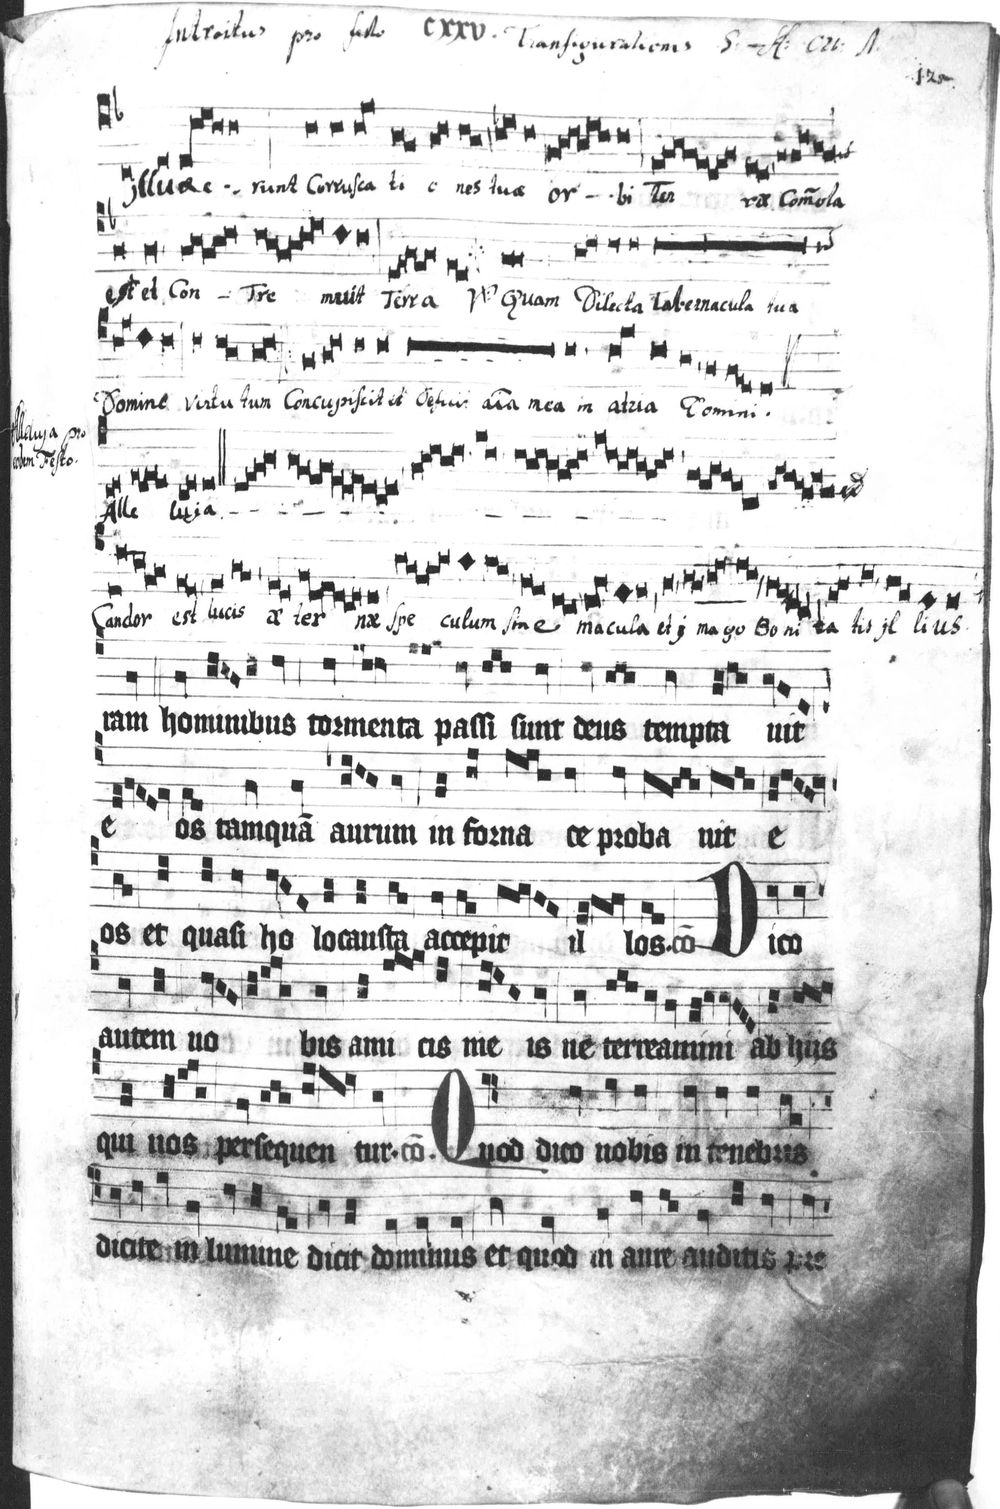 Introitus pro festo CXXV. Transfigurationis
125.
jlluxe -- runt Corrusca ti o nes tuæ or - - bi Ter ræ Com̃ota
est et Con - Tre muit Terra V. Quam Dilecta tabernacula tua
Domine virtu tum Concupiscit et Deficit aĩa mea in atria Domini.
Alleluja pro
eodem Festo.
Alle luja - - - - - - - -
Candor est lucis æ ter næ spe culum sine macula et j mago Bo ni ta tis jl li us
ram hominibus tormenta passi sunt deus tempta uit
e os tamquã aurum in forna ce proba uit e
os et quasi ho locausta accepit il los. cõ Dico
autem uo bis ami cis me is ne terreamini ab hiis
qui uos persequen tur. cõ. Quod dico uobis in tenebris
dicite in lumine dicit dominus et quod in aure auditis pre